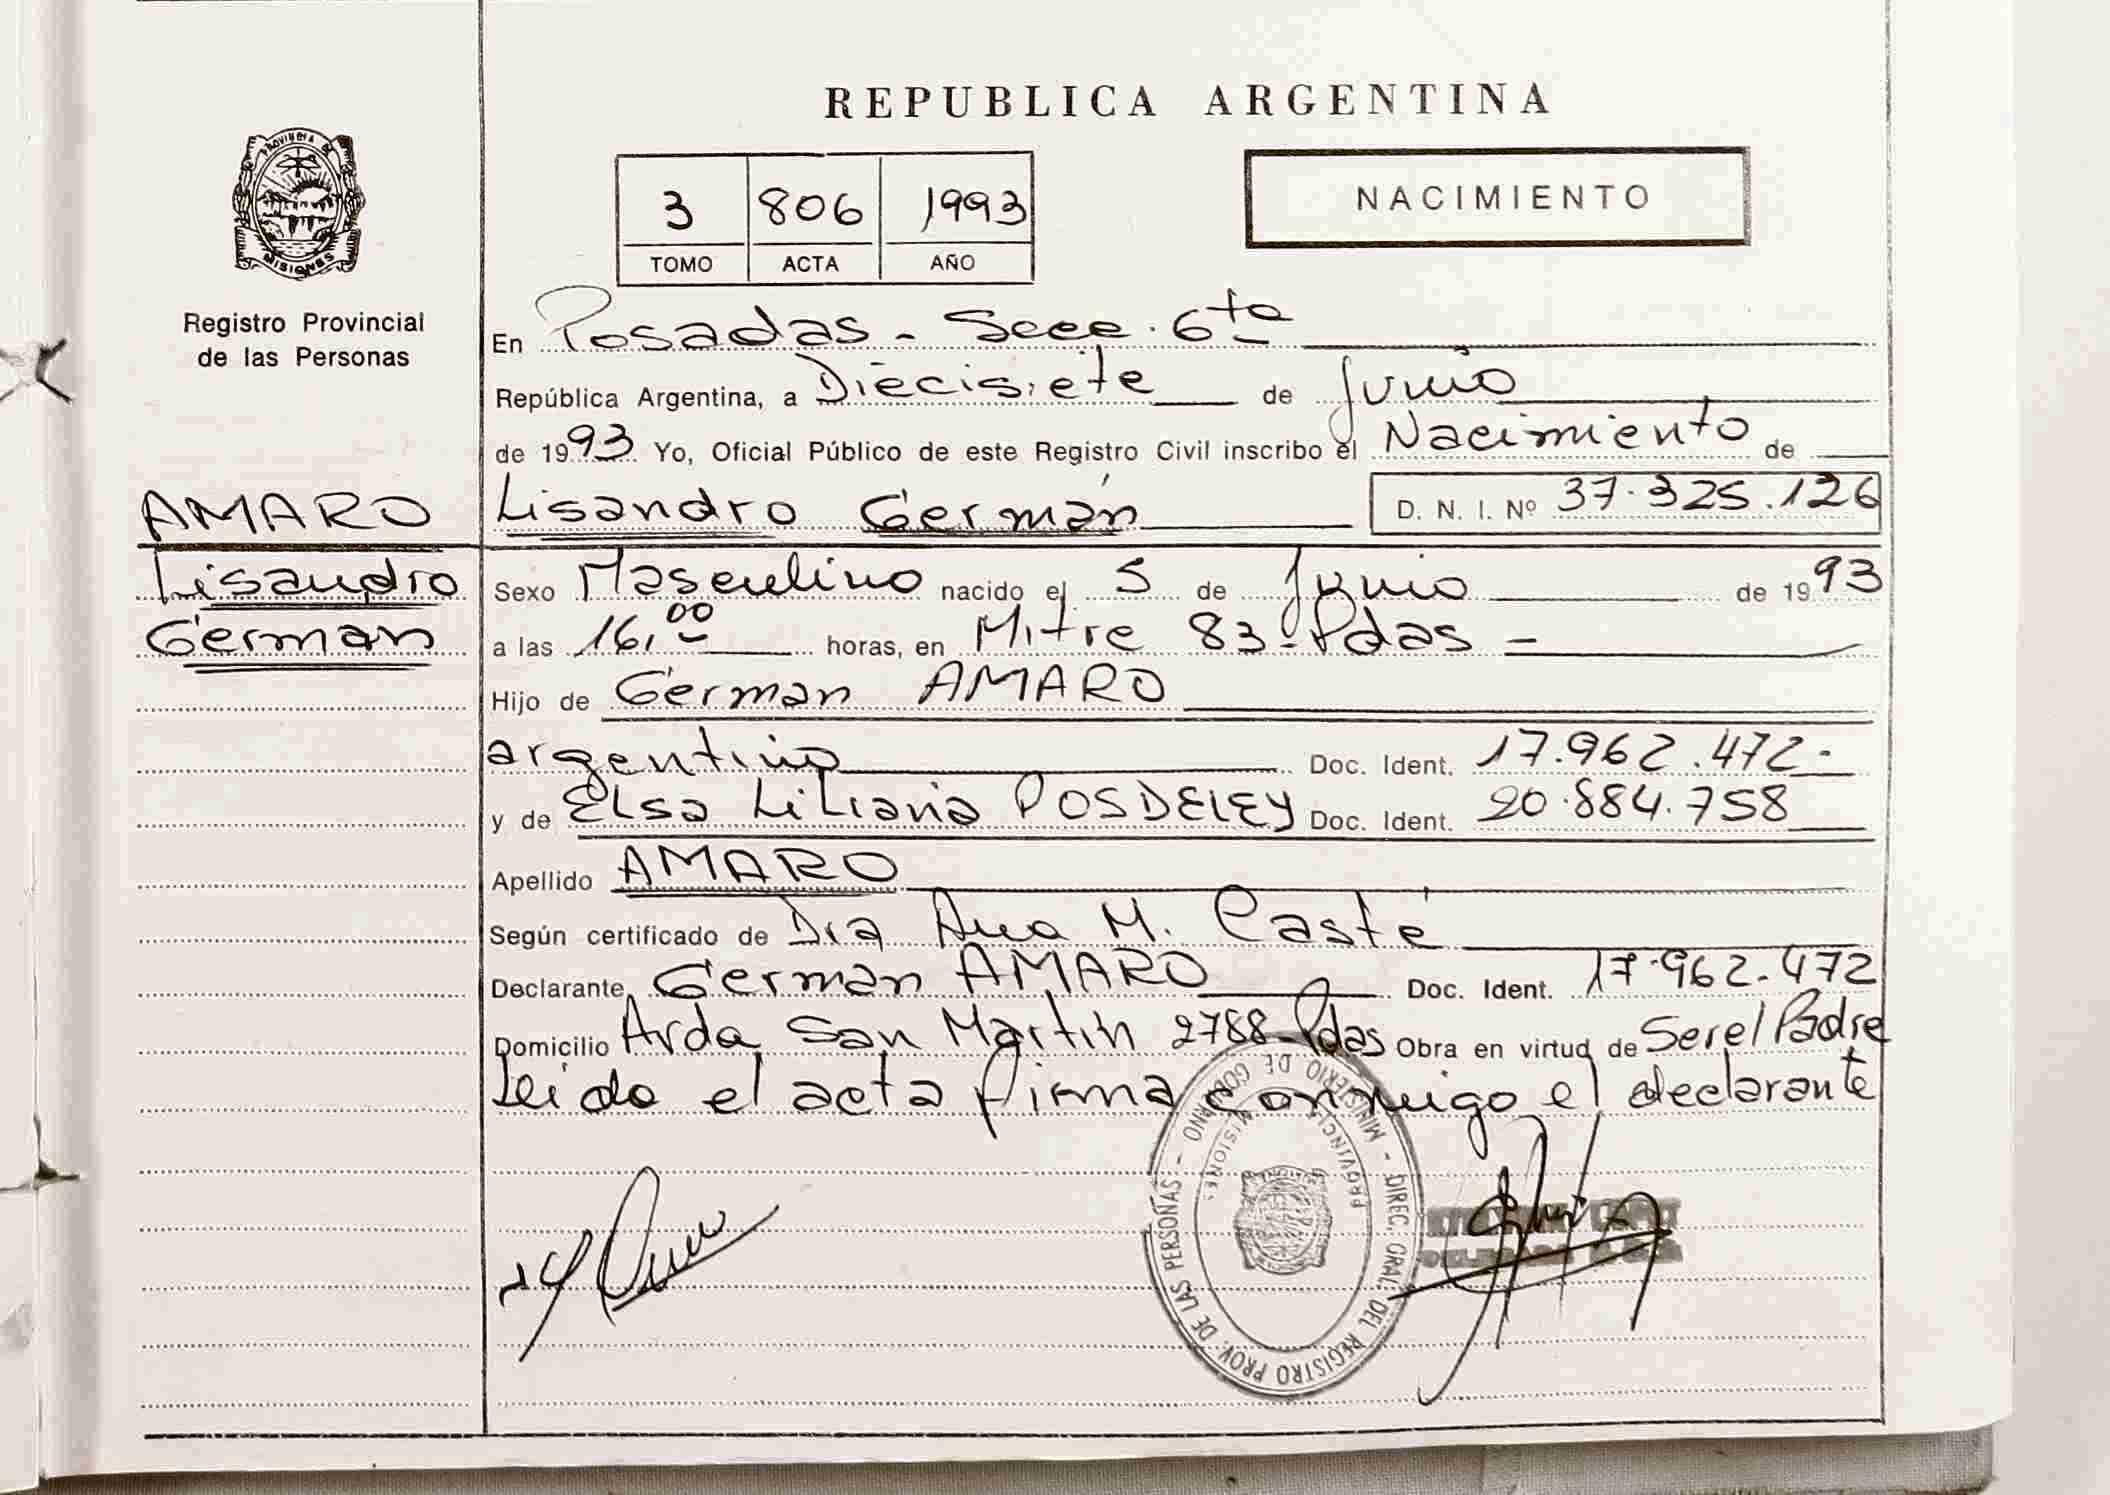 REPUBLICA ARGENTINA
PROVINCIA DE
MISIONES
3 806 1993
TOMO ACTA AÑO
NACIMIENTO
Registro Provincial
de las Personas
En Posadas - Secc. 6ta
República Argentina, a Diecisiete de Junio
de 1993 Yo, Oficial Público de este Registro Civil inscribo el Nacimiento de
AMARO
Lisandro
German
Lisandro Germán D. N. I. Nº 37.325.126
Sexo Masculino nacido el 5 de Junio de 1993
a las 16,00 horas, en Mitre 83 - Pdas -
Hijo de German AMARO
argentino Doc. Ident. 17.962.472-
y de Elsa Liliana POSDELEY Doc. Ident. 20.884.758
Apellido AMARO
Según certificado de Dra Ana M. Casté
Declarante German AMARO Doc. Ident. 17.962.472
Domicilio Avda San Martin 2788 - Pdas Obra en virtud de Ser el Padre
Leido el acta firma conmigo el declarante
MINISTERIO DE GOBIERNO - DIREC. GRAL. DEL REGISTRO PROV. DE LAS PERSONAS -
PROVINCIA MISIONES